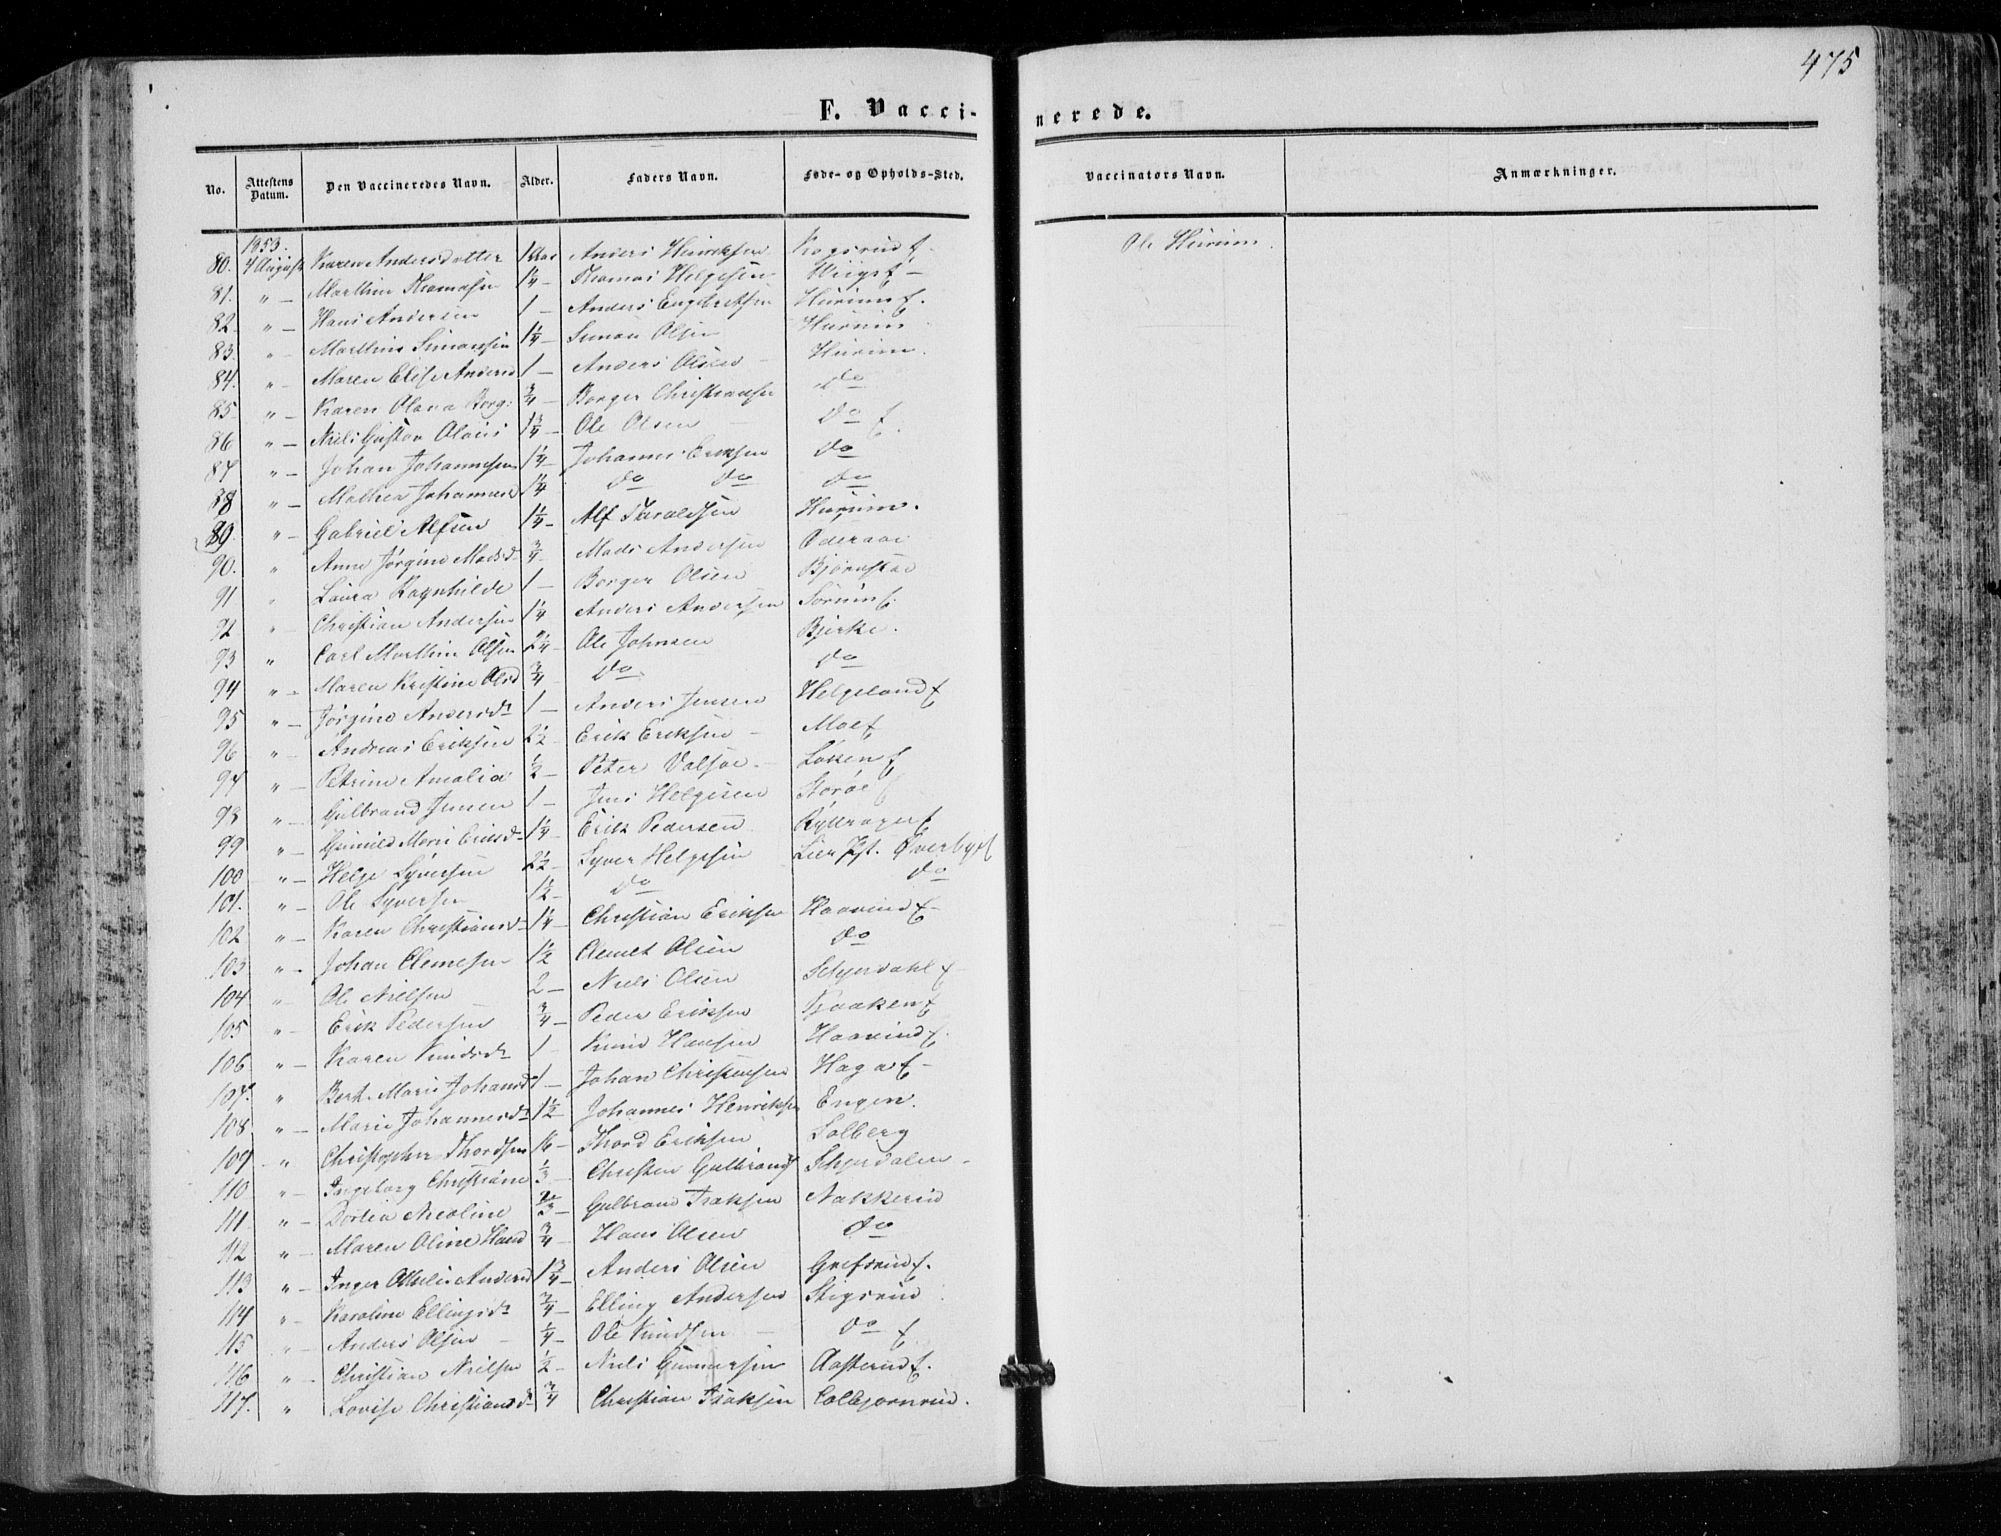 475
F. Vaccinerede.
No. Attestens Datum. Den Vaccineredes Navn. Alder. Faders Navn. Føde- og Opholds-Sted. Vaccinators Navn. Anmærkninger.
1853.
80. 4 August Karen Andersdatter 1 Aar Anders Henriksen Ole Hurum
81. " — Marthin Thomasen 1¼ Thomas Helgesen
82 " — Hans Andersen 1 — Anders Engebretsen
83. " — Marthin Simonsen 1¼ Simon Olsen Hurum
84. " — Maren Elise Andersd 1 — Anders Olsen — Hurum.
85 " — Karen Olava Borg: ¾ — Borger Christiansen do
86 " — Niels Gustav Olaus 1¾ — Ole Olsen — do
87 " — Johan Johannesen 1¼ — Johannes Eriksen do
88 " — Mathea Johannesd 1¼ do do do
89 " — Gabriel Alfsen 1¼ — Alf Haraldsen Hurum.
90. " Anne Jørgine Madsd ¾ — Mads Andersen Oderaae
91 " Laura Ragnhilde 1 — Borger Olsen Bjørnstad
92 " — Christian Andersen 1¼ Anders Andersen
93 " Carl Marthin Olsen 2¼ — Ole Johnsen Bjerke.
94 " — Maren Kristine Olsd ¾ do do
95 " — Jørgine Andersdr 1 — Anders Jensen Helgeland
96 " — Andreas Eriksen 2½ — Erik Eriksen — Moe
97 " — Petrine Amalia ½ — Peter Løken
98 " — Gulbrand Jensen 1 — Jens Helgesen Storøe
99 " — Gunild Marie Eriksdr 1¼ — Erik Pedersen
100 " — Helge Syversen 2½ — Syver Helgesen Lier Pgt. Øverby
101. " — Ole Syversen 1½ — do do
102 " — Karen Christiansd 1¼ — Christian Eriksen Haavind
103 " — Johan Clemetsen 1½ Clemet Olsen do
104 " — Ole Nielsen — 2 — Niels Olsen
105 " — Erik Pedersen ¾ — Peder Eriksen
106 " — Karen Knudsdr 1 — Knud Hansen Haavind
107. " Berte Marie Johansd 1 — Johan Christensen Haga
108 " — Marie Johannesdr 1½ Johannes Henriksen Engen.
109 " Christopher Thordsen 16 — Thord Eriksen Solberg
110 " — Ingeborg Christiane ⅓ Christen Gulbrands
111 " — Dorthea Nicoline ⅔ — Gulbrand Isaksen Nakkerud
112 " — Maren Oline Hansd ¾ — Hans Olsen do
113 " — Inger Andersd 1¾ — Anders Olsen Grefsrud
114 " — Karoline Ellingsdr ¾ — Elling Andersen Stigsrud
115 " — Anders Olsen — ¼ — Ole Knudsen — do
116 " — Christian Nielsen ½ — Niels Gunnersen Aasterud
117. " Lovise Christiansd ¾ Christian Isaksen Colbjørnrud.